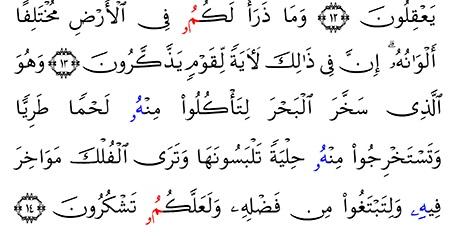 يَعْقِلُونَ ۝١٢ وَمَا ذَرَأَ لَكُمُۥ فِى ٱلْأَرْضِ مُخْتَلِفًا
أَلْوَٰنُهُۥٓ ۗ إِنَّ فِى ذَٰلِكَ لَأٓيَةً لِّقَوْمٍ يَذَّكَّرُونَ ۝١٣ وَهُوَ
ٱلَّذِى سَخَّرَ ٱلْبَحْرَ لِتَأْكُلُوا۟ مِنْهُۥ لَحْمًا طَرِيًّا
وَتَسْتَخْرِجُوا۟ مِنْهُۥ حِلْيَةً تَلْبَسُونَهَا وَتَرَى ٱلْفُلْكَ مَوَاخِرَ
فِيهِۦ وَلِتَبْتَغُوا۟ مِن فَضْلِهِۦ وَلَعَلَّكُمُۥ تَشْكُرُونَ ۝١٤